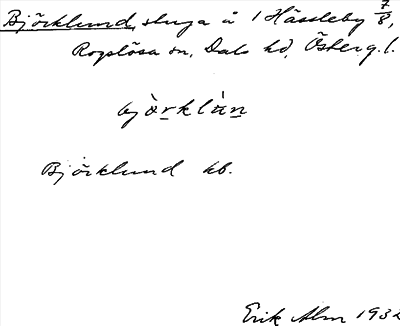 Björklund, stuga å 1 Hässleby 7/8,
Rogslösa sn, Dals hd, Österg. l.
bjòrklán
Björklund kb.
Erik Alm 1932